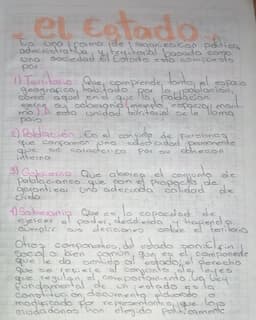 el Estado
Es una forma de organización política,
administrativa y territorial basada como
una sociedad el Estado esta compuesto
por:
1) Territorio: Que comprende tanto el espacio
geografico habitado por la población,
como aquel en el que la población
ejerce su soberania (espacio
mo) A esta unidad territorial se le llama
país
2) Población: Es el conjunto de personas
que componen una colectividad permanente
que se caracteriza por su cohesión
interna
3) Gobierno: Que abarca el conjunto de
poblaciones que tienen el proposito de
garantizar una adecuada calidad de
vida
4) Soberania: Que es la capacidad de
ejercer el poder, decidiendo y haciendo
cumplir sus deciciones sobre el territorio
Otros componentes del estado son: El fin
social o bien común, que es el componente
que le da sentido al estado, el derecho
que se refiere al conjunto de leyes
que regulan el comportamiento. La ley
fundamental de un estado es la
constitución, documento elaborado o
modificado por representantes que los
ciudadanos han elegido